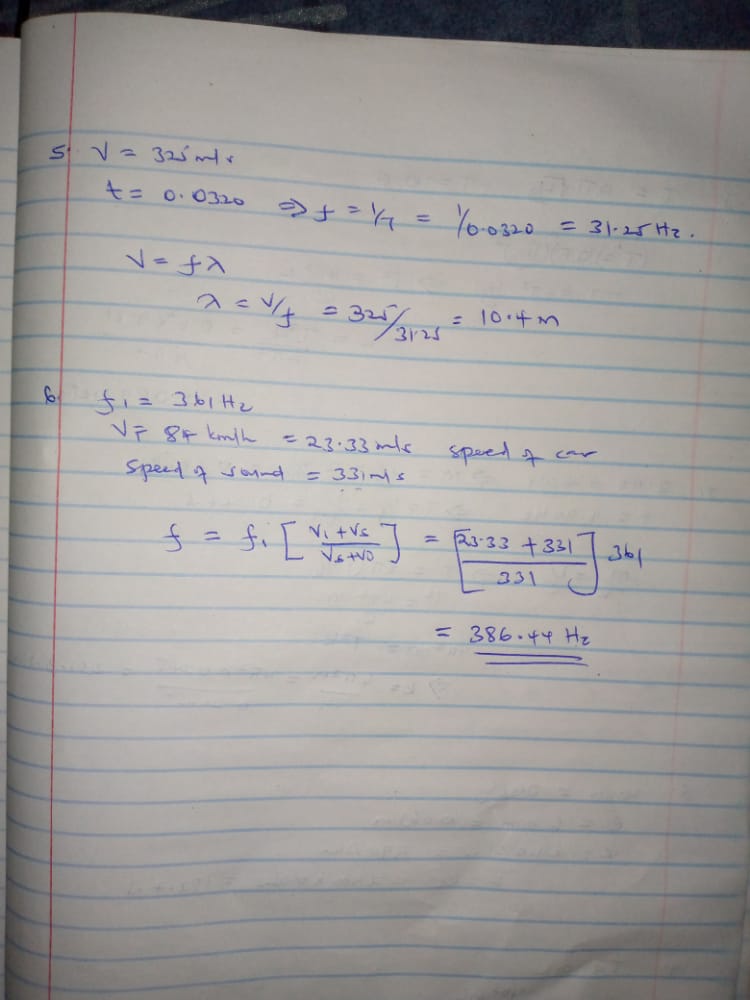 5. V = 325 m/s
t = 0.0320 ⇒ f = 1/T = 1/0.0320 = 31.25 Hz.
V = fλ
λ = V/f = 325/31.25 = 10.4 m
6. f₁ = 361 Hz
V = 84 km/h = 23.33 m/s speed of car
Speed of sound = 331 m/s
f = f₁ [V₁ + Vs / Vs + VO] = [23.33 + 331 / 331] 361
= 386.44 Hz